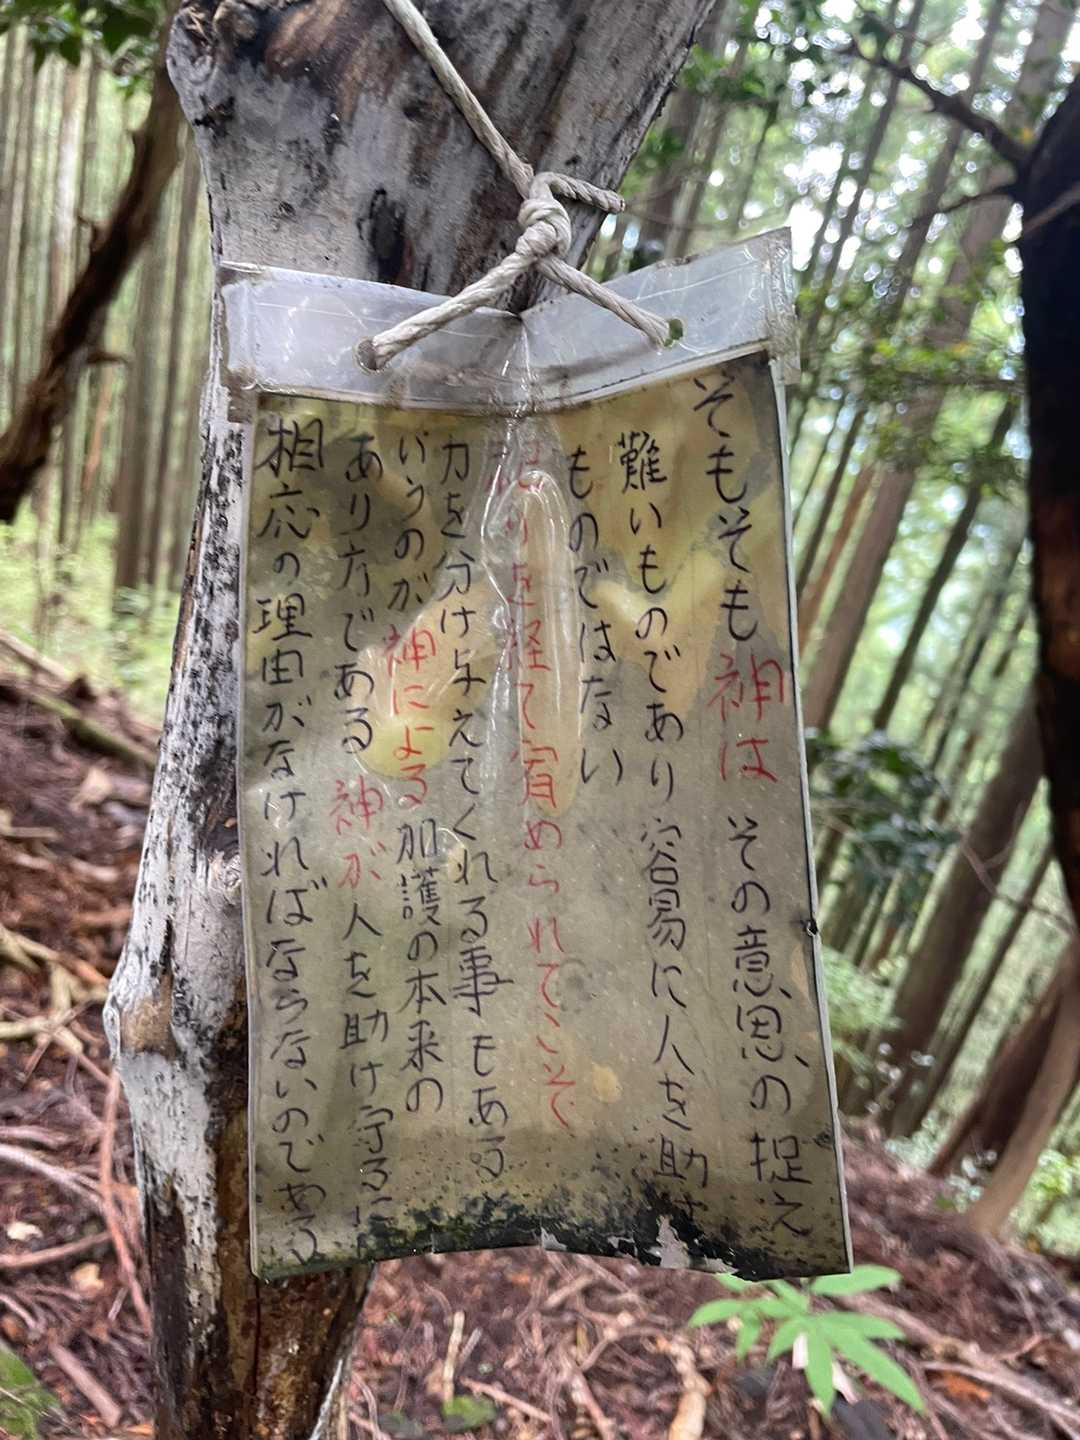 そもそも神は その意思の捉え
難いものであり容易に人を助け
ものではない
祀りを経て宥められてこそ
力を分け与えてくれる事もある
いうのが神による加護の本来の
あり方である 神が人を助け守るに
相応の理由がなければならないのである